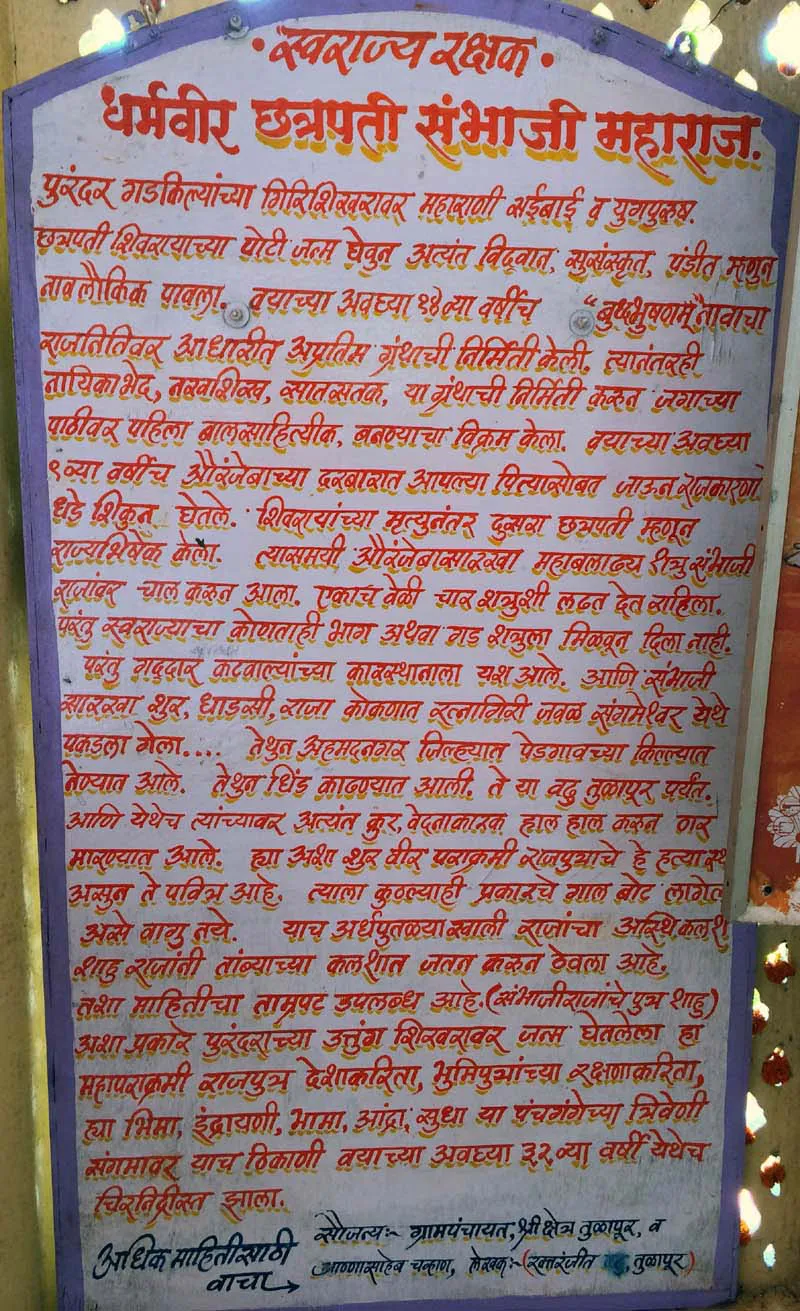 • स्वराज्य रक्षक •
धर्मवीर छत्रपती संभाजी महाराज.
पुरंदर गडकिल्यांच्या गिरिशिखरावर महाराणी सईबाई व युगपुरुष.
छत्रपती शिवरायाच्या पोटी जन्म घेवुन अत्यंत विद्वान, सुसंस्कृत, पंडीत म्हणुन
नावलौकिक पावला. वयाच्या अवघ्या १४व्या वर्षीच "बुधभुषणम्" नावाचा
राजनितिवर आधारीत अप्रतिम ग्रंथाची निर्मिती केली. त्यानंतरही
नायिकाभेद, नखशिख, सातसतक, या ग्रंथाची निर्मिती करुन जगाच्या
पाठीवर पहिला बालसाहित्यीक, बनण्याचा विक्रम केला. वयाच्या अवघ्या
९व्या वर्षीच औरंजेबाच्या दरबारात आपल्या पित्यासोबत जाऊन राजकारणा
धडे शिकुन घेतले. शिवरायांच्या मृत्युनंतर दुसरा छत्रपती म्हणून
राज्यभिषेक केला. त्यासमयी औरंजेबासारखा महाबलाढ्य शत्रु संभाजी
राजांवर चाल करुन आला. एकाच वेळी चार शत्रुशी लढत देत राहिला.
परंतु स्वराज्याचा कोणताही भाग अथवा गड शत्रुला मिळवून दिला नाही.
परंतु गद्दार कटवाल्यांच्या कारस्थानाला यश आले. आणि संभाजी
सारखा शुर, धाडसी, राजा कोकणात रत्नागिरी जवळ संगमेश्वर येथे
पकडला गेला.... तेथुन अहमदनगर जिल्ह्यात पेडगावच्या किल्ल्यात
नेण्यात आले. तेथुन धिंड काढण्यात आली. ते या वढु तुळापूर पर्यंत.
आणि येथेच त्यांच्यावर अत्यंत क्रुर, वेदनाकारक हाल हाल करुन ठार
मारण्यात आले. ह्या अशा शुर वीर पराक्रमी राजपुत्राचे हे हत्या स्थ
असुन ते पवित्र आहे. त्याला कुठल्याही प्रकारचे गाल बोट लागेल
असे वागु नये. याच अर्धपुतळया खाली राजांचा अस्थि कलश
शाहु राजांनी तांब्याच्या कलशात जतन करुन ठेवला आहे.
तशा माहितीचा ताम्रपट उपलब्ध आहे.(संभाजीराजांचे पुत्र शाहु)
अशा प्रकारे पुरंदराच्या उत्तुंग शिखरावर जन्म घेतलेला हा
महापराक्रमी राजपुत्र देशाकरिता, भुमिपुत्रांच्या रक्षणाकरिता,
ह्या भिमा, इंद्रायणी, भामा, आंद्रा, सुधा या पंचगंगेच्या त्रिवेणी
संगमावर याच ठिकाणी वयाच्या अवघ्या ३२व्या वर्षी येथेच
चिरनिद्रीस्त झाला.
अधिक माहितीसाठी वाचा →
सौजन्य:- ग्रामपंचायत, श्री क्षेत्र तुळापूर, व
आण्णासाहेब चव्हाण, लेखक:- (रक्तरंजीत तुळापूर)